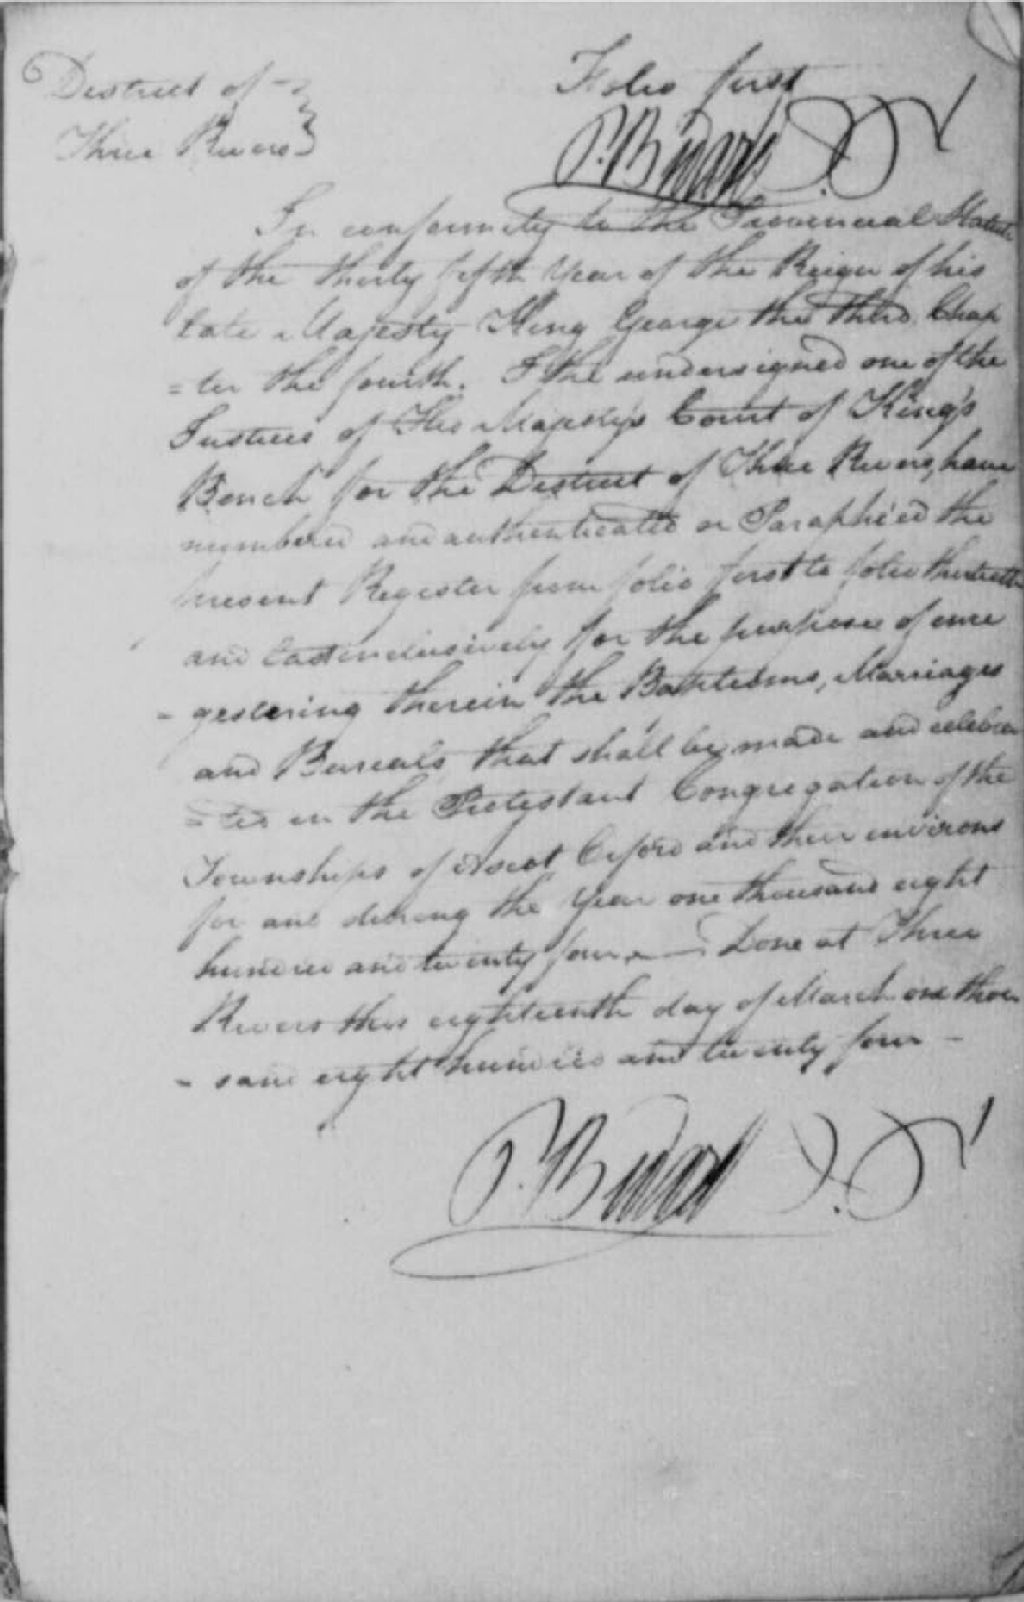 District of
Three Rivers
Folio first
P. Bedard
In conformity to the Provincial Statute
of the thirty fifth Year of the Reign of his
late Majesty King George the third Chap
=ter the fourth. I the undersigned one of the
Justices of His Majesty's Court of King's
Bench for the District of Three Rivers, have
numbered and authenticated or Paraphéed the
present Register from folio first to folio
and last inclusively for the purpose of enre
- gestering therein the Baptisms, Marriages
and Burials that shall be made and celebra
=ted in the Protestant Congregation of the
Townships of Ascot and their environs
for and during the Year one thousand eight
hundred and twenty four — Done at Three
Rivers this eighteenth day of March one thou
- sand eight hundred and twenty four -
P. Bedard